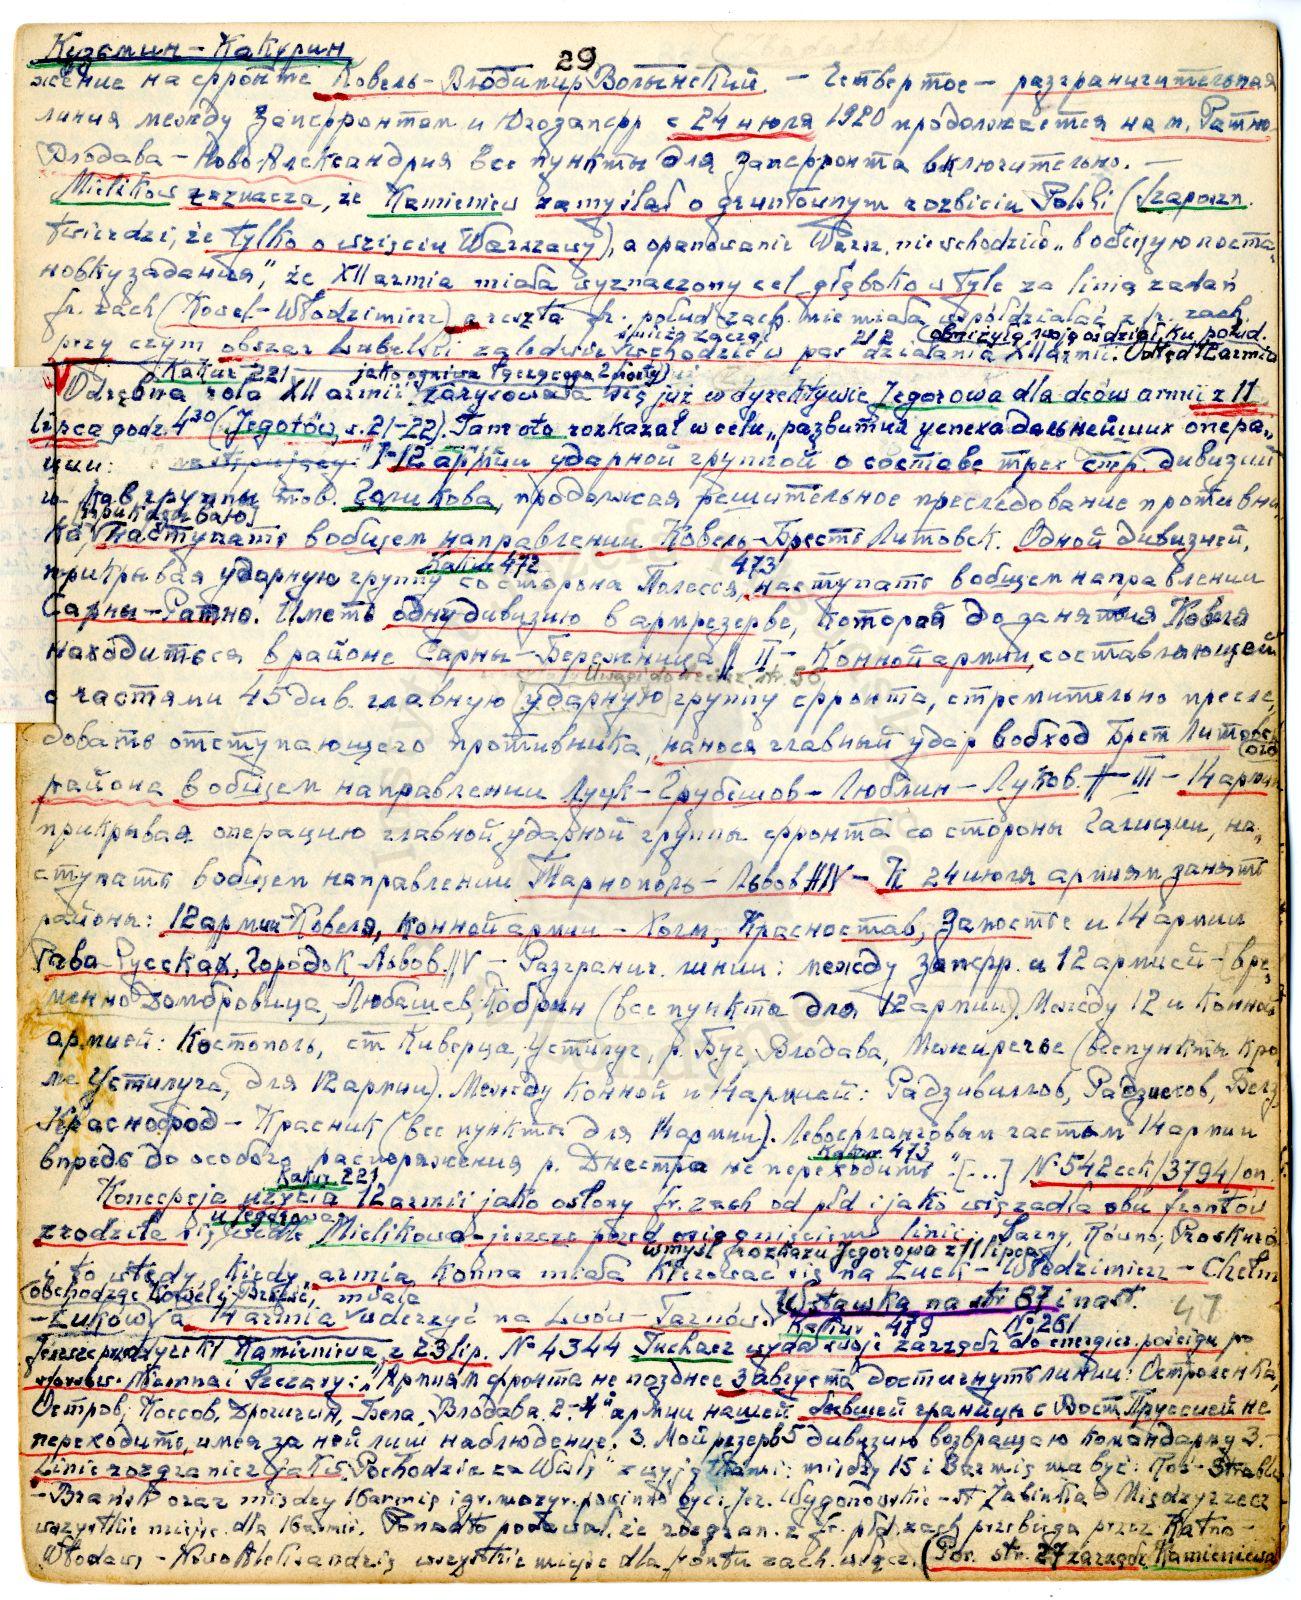 Кузьмин – Какурин
29
жение на фронте Ковель – Владимир Волынский. – Четвертое – разграничительная
линия между Запфронтом и Югозапфр с 24 июля 1920 продолжается на м. Ратно
Влодава – Ново-Александрия все пункты для Запфронта включительно. –
Mielikow zaznacza, że Kamieniew zamyślał o gruntownym rozbiciu Polski (Szaposzn.
twierdzi, że tylko o wzięciu Warszawy), a opanowanie Warsz. nie wchodziło „в общую поста-
новку задания", że XII armia miała wyznaczony cel głęboko w tyle za linią zadań
fr. zach (Kowel – Włodzimierz) a reszta fr. połud zach. nie miała współdziałać z fr. zach.
212 obniżyła swoją
przy czym obszar lubelski zaledwie wchodził w pas działania XII armii. Odtąd 12 armia
Kakur 221
Odrębna rola XII armii zarysowała się już w dyrektywie Jegorowa dla dców armii z 11
lipca godz. 4³⁰ (Jegorow, s. 21–22). Tam oto rozkazał w celu „развития успеха дальнейших опера-
ции: I – 12 армии ударной группой о составе трех стр. дивизий
и кав группы тов. Голикова, продолжая решительное преследование противни-
приказываю
ка, наступать в общем направлении Ковель – Брест Литовск. Одной дивизией,
Kakur 472 473
прикрывая ударную группу со стороны Полесья, наступать в общем направлении
Сарны – Ратно. Иметь одну дивизию в армрезерве, которой до занятия Ковеля
находиться в районе Сарны – Бережница // II – Конной армии, составляющей
str. 50
с частями 45 див. главную ударную группу фронта, стремительно пресле-
довать отступающего противника, нанося главный удар в обход Брест Литовск
ого
района в общем направлении Луцк – Грубешов – Люблин – Луков. // – III – 14 армии
прикрывая операцию главной ударной группы фронта со стороны Галиции, на-
ступать в общем направлении Тарнополь – Львов // IV – К 24 июля армиям занять
районы: 12 армии – Ковеля, Конной армии – Холм, Красностав, Замостье и 14 армии
Рава Русская, Городок, Львов. // V – Разгранич. линии: между Запфр. и 12 армией – вре-
менно Домбровица, Любашев, Кобрин (все пункты для 12 армии). Между 12 и Конной
армией: Костополь, ст Киверцы Устилуг, р. Буг Влодава, Межиречье (все пункты кро-
ме Устилуга, для 12 армии). Между Конной и 14 армией: Радзивиллов, Радзехов, Белз
Красноброд – Красник (все пункты для 14 армии). Левофланговым частям 14 армии
Kakur 473
впредь до особого распоряжения р. Днестра не переходить" [...] № 542 сек/3794/оп.
Kakur 221
Koncepcja użycia 12 armii jako osłony fr. zach od płd i jako wiązadła obu frontów
u Jegorowa
zrodziła się wedle Mielikowa jeszcze przed osiągnięciem linii: Sarny, Równo, Proskurów
w myśl rozkazu Jegorowa z 11 lipca
i to wtedy, kiedy armia konna miała kierować się na Łuck – Włodzimierz – Chełm
obchodząc Kowel i Brześć, miała
– Łuków, a 14 armia uderzyć na Lwów – Tarnów. Wstawka na str 67 i nast. 47
Kakur 479 № 261
Jeszcze przed dyrekt Kamieniewa z 23 lip. № 4344 Tuchacz wydał swoje zarządz do energicz. pościgu po
Niemna i Szczary: „Армиям фронта не позднее 3 августа достигнуть линии: Остроленка,
Остров, Коссов, Дрогичин, Бела, Влодава. 2. – 4 армии нашей бывшей границы с Вост Пруссией не
переходить, имея за ней лиш наблюдение. 3. Мой резерв 5 дивизию возвращаю командарму 3. –
Linie rozgranicz jak w „Pochodzie za Wisłę" z wyjątkami: między 15 i 3 armią ma być:
– Brańsk oraz między 16 armią i gr. mozyr. powinno być: Jez. Wygonowskie – st Żabinka – Międzyrzecz
wszystkie miejsc. dla 16 armii. Ponadto podawał, że rozgran. z fr. płd. zach przebiega przez Ratno –
Włodawa – Nowo Aleksandrię wszystkie miejsc dla frontu zach. włącz. (Por. str. 27 zarządz Kamieniewa